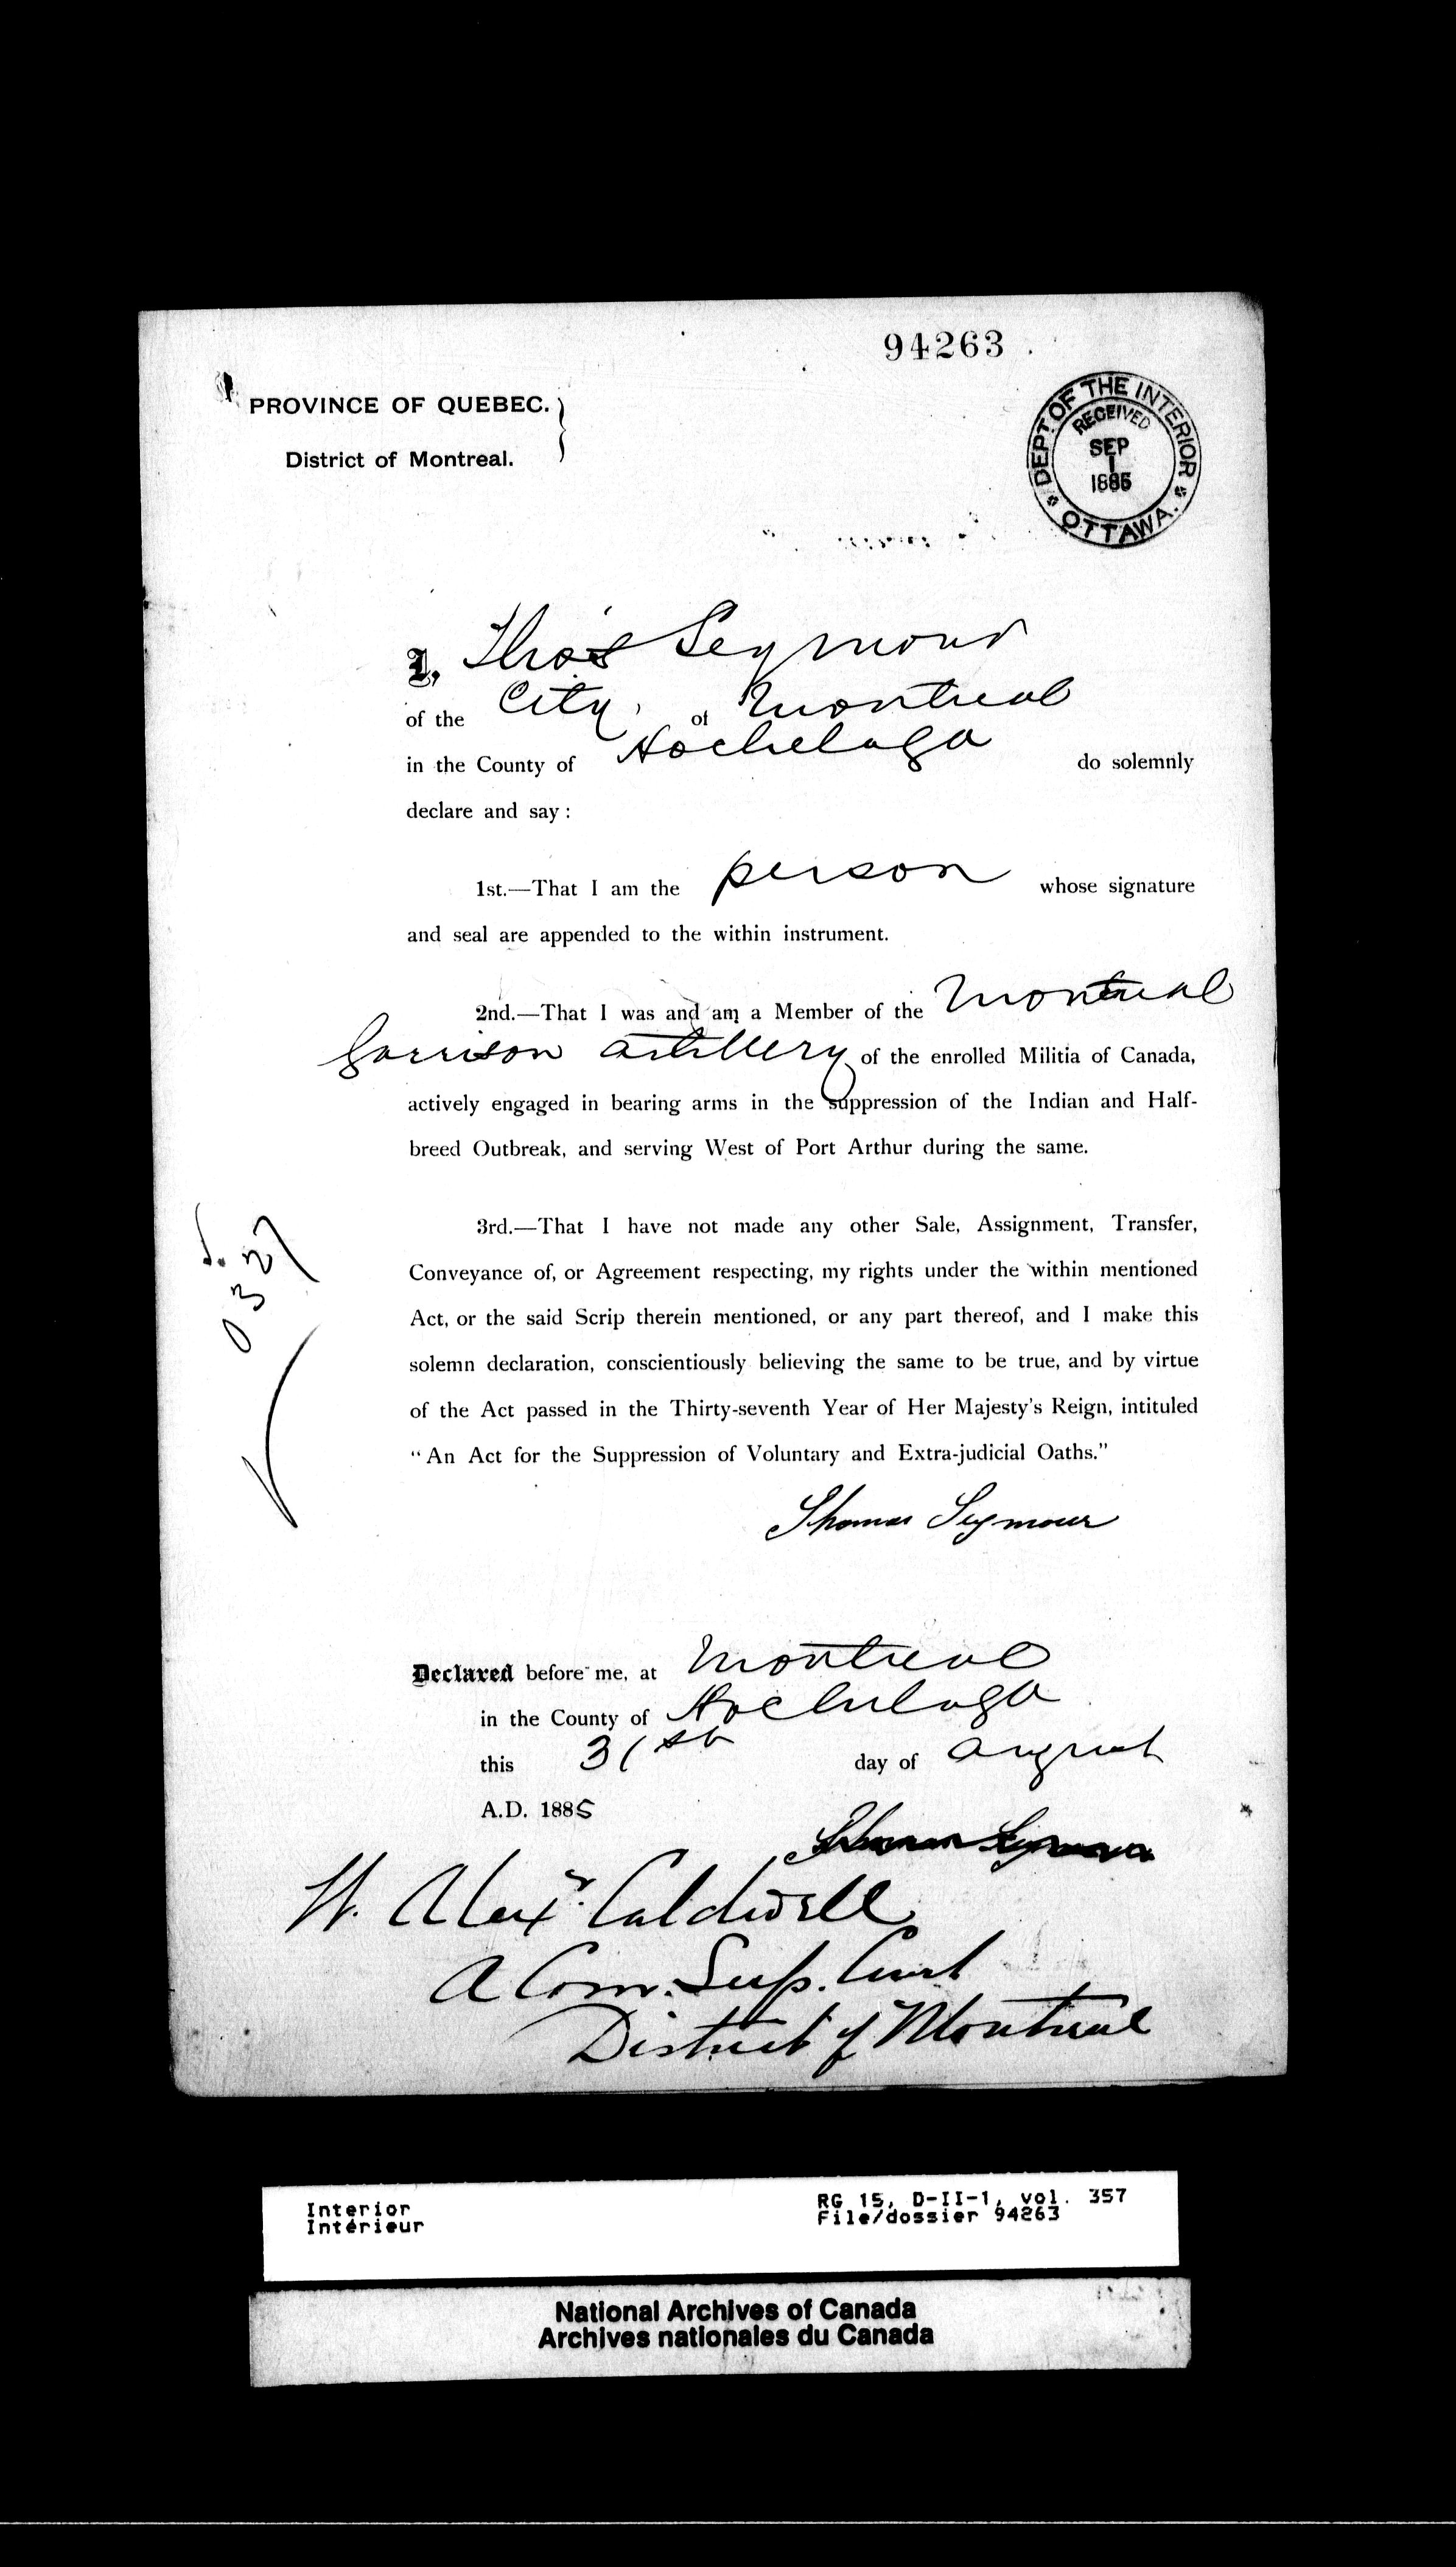 94263
PROVINCE OF QUEBEC.
District of Montreal.
DEPT. OF THE INTERIOR
RECEIVED
SEP
1
1885
OTTAWA.
I, Thos Seymour
of the City, of Montreal
in the County of Hochelaga do solemnly
declare and say :
1st.—That I am the person whose signature
and seal are appended to the within instrument.
2nd.—That I was and am a Member of the Montreal
Garrison Artillery of the enrolled Militia of Canada,
actively engaged in bearing arms in the suppression of the Indian and Half-
breed Outbreak, and serving West of Port Arthur during the same.
0327
3rd.—That I have not made any other Sale, Assignment, Transfer,
Conveyance of, or Agreement respecting, my rights under the within mentioned
Act, or the said Scrip therein mentioned, or any part thereof, and I make this
solemn declaration, conscientiously believing the same to be true, and by virtue
of the Act passed in the Thirty-seventh Year of Her Majesty's Reign, intituled
“ An Act for the Suppression of Voluntary and Extra-judicial Oaths.”
Thomas Seymour
Declared before me, at Montreal
in the County of Hochelaga
this 31st day of August
A.D. 1885
Thomas Seymour
W. Alexr. Caldwell
A Com. Sup. Court
District of Montreal
Interior
Intérieur
RG 15, D-II-1, vol. 357
File/dossier 94263
National Archives of Canada
Archives nationales du Canada